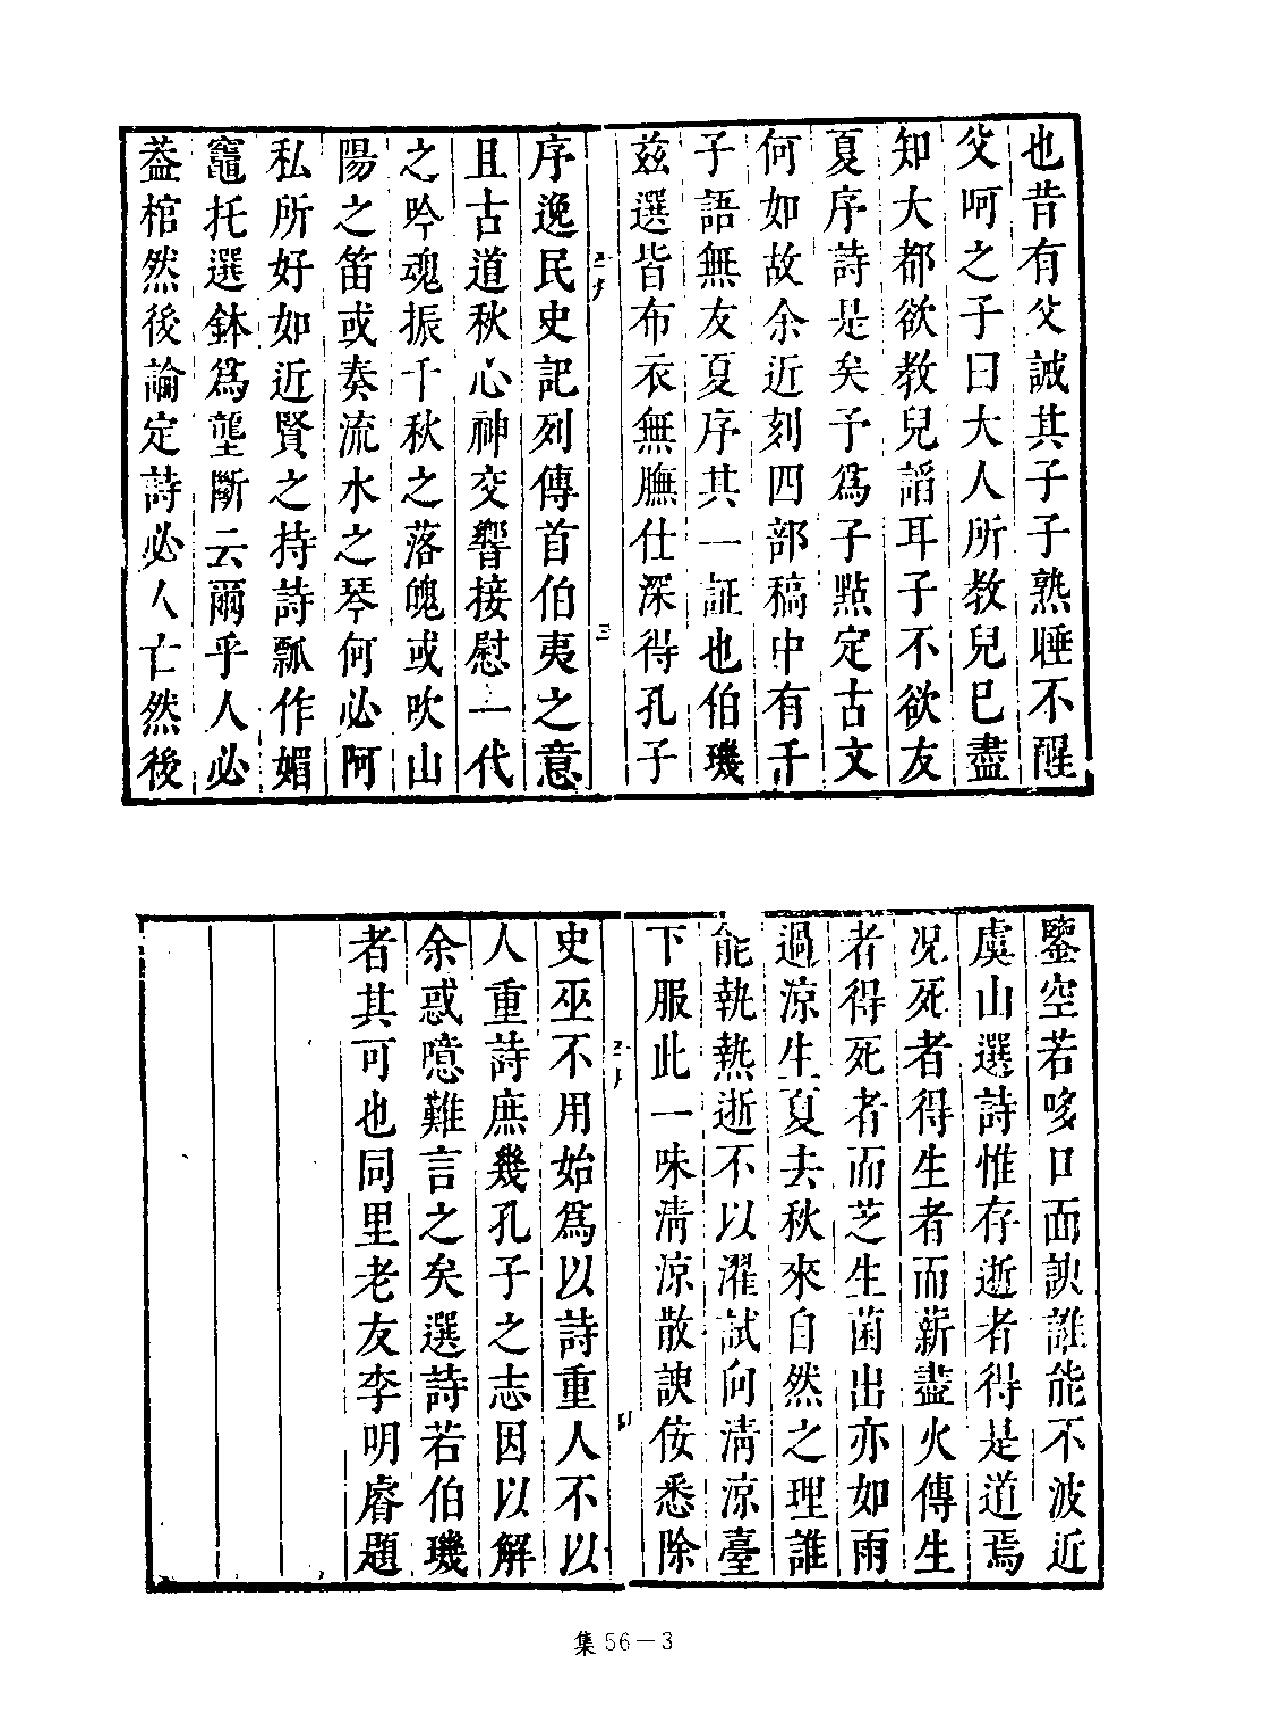 也昔有父誠其子子熟睡不醒
父呵之子曰大人所教兒已盡
知大都欲教兒謟耳子不欲友
夏序詩是矣予爲子㸃定古文
何如故余近刻四部稿中有于
子語無友夏序其一証也伯璣
兹選皆布衣無膴仕深得孔子
序逸民史記列傳首伯夷之意
且古道秋心神交響接慰一代
之吟魂振千秋之落魄或吹山
陽之笛或奏流水之琴何必阿
私所好如近賢之持詩瓢作媚
竈托選鉢爲壟斷云爾乎人必
葢棺然後論定詩必人亡然後
三
鑒空若哆口面諛誰能不波近
虞山選詩惟存逝者得是道焉
况死者得生者而薪盡火傳生
者得死者而芝生菌出亦如雨
過涼生夏去秋來自然之理誰
能執熱逝不以濯試向清涼臺
下服此一味清涼散諛佞悉除
史巫不用始爲以詩重人不以
人重詩庶幾孔子之志因以解
余惑噫難言之矣選詩若伯璣
者其可也同里老友李明睿題
集56－3